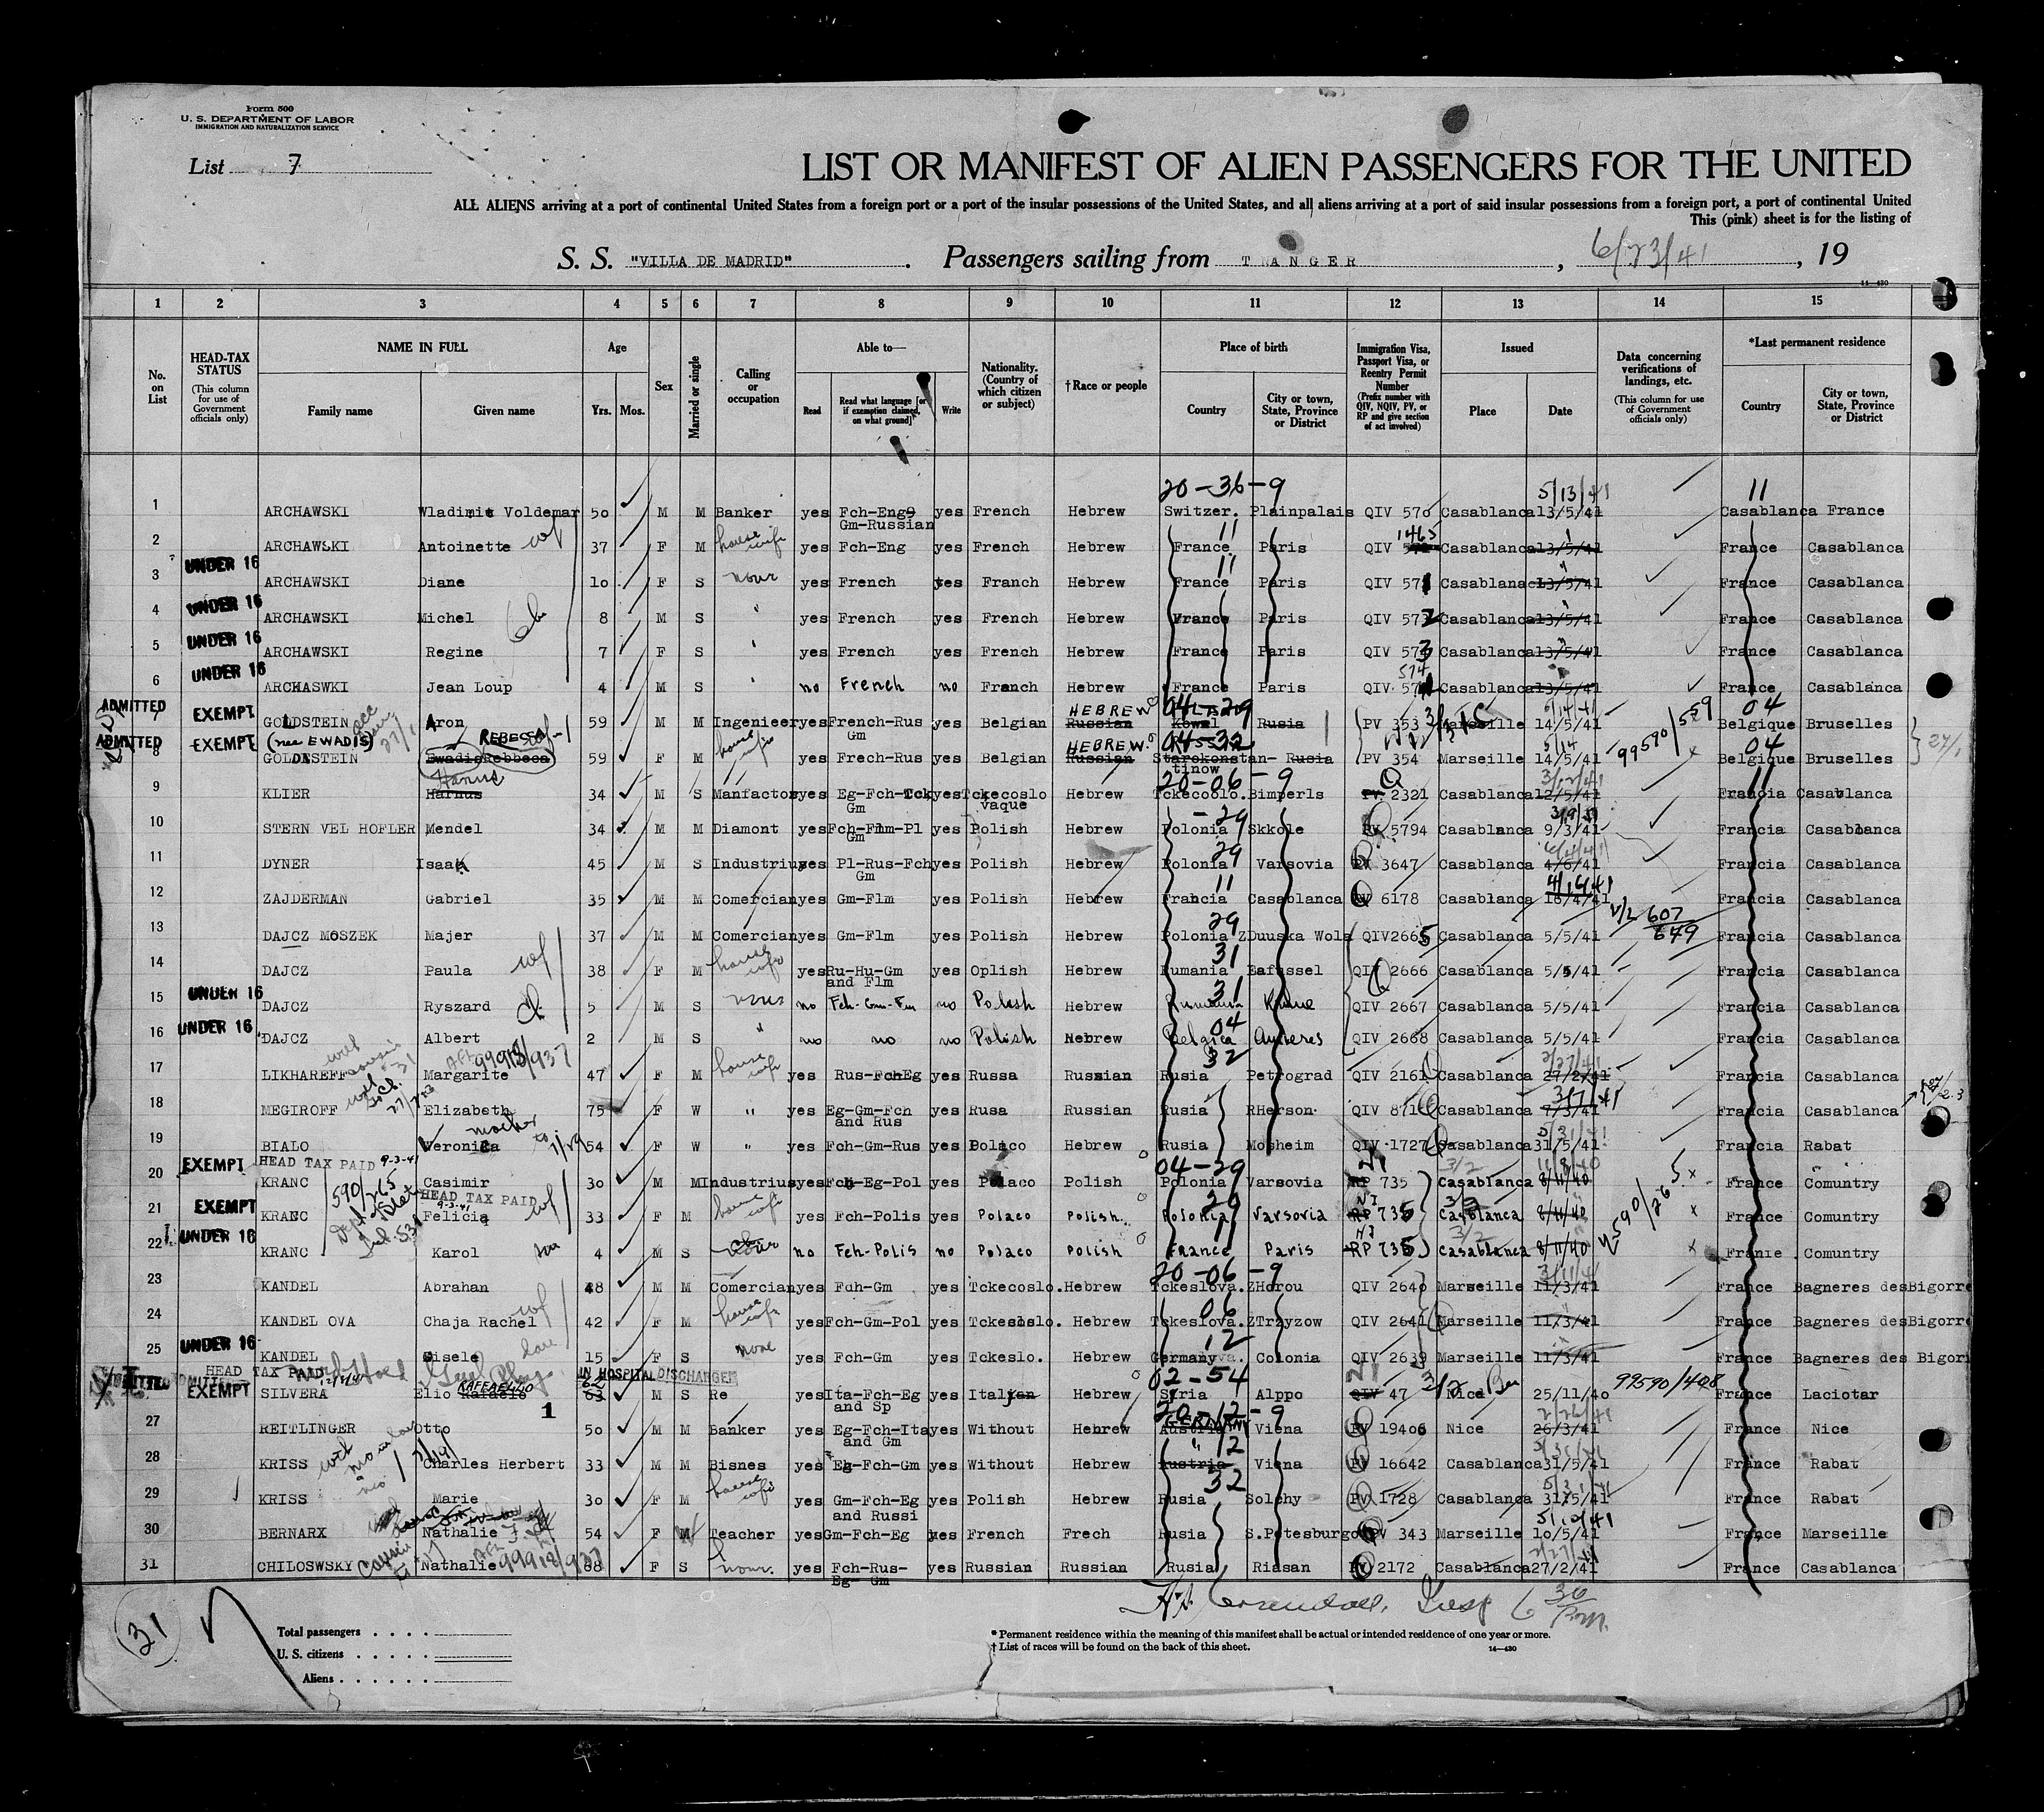 Form 500
U. S. DEPARTMENT OF LABOR
IMMIGRATION AND NATURALIZATION SERVICE
List 7
LIST OR MANIFEST OF ALIEN PASSENGERS FOR THE UNITED
ALL ALIENS arriving at a port of continental United States from a foreign port or a port of the insular possessions of the United States, and all aliens arriving at a port of said insular possessions from a foreign port, a port of continental United
This (pink) sheet is for the listing of
S. S. "VILLA DE MADRID" . Passengers sailing from TANGER , 6/23/41 , 19
14-430
1 2 3 4 5 6 7 8 9 10 11 12 13 14 15
No. on List
HEAD-TAX STATUS (This column for use of Government officials only)
NAME IN FULL
Family name Given name
Age
Yrs. Mos.
Sex
Married or single
Calling or occupation
Able to—
Read Read what language [or if exemption claimed, on what ground] Write
Nationality. (Country of which citizen or subject)
†Race or people
Place of birth
Country City or town, State, Province or District
Immigration Visa, Passport Visa, or Reentry Permit Number (Prefix number with QIV, NQIV, PV, or RP and give section of act involved)
Issued
Place Date
Data concerning verifications of landings, etc. (This column for use of Government officials only)
*Last permanent residence
Country City or town, State, Province or District
20-36-9 5/13/41 11
1 ARCHAWSKI Wladimit Voldemar 50 M M Banker yes Fch-Eng yes French Hebrew Switzer. Plainpalais QIV 570 Casablanca 13/5/41 Casablanca France
Gm-Russian
2 ARCHAWSKI Antoinette wf 37 F M house wife yes Fch-Eng yes French Hebrew France Paris QIV 1465 Casablanca 13/5/41 France Casablanca
3 UNDER 16 ARCHAWSKI Diane 10 F S none yes French yes Franch Hebrew France Paris QIV 571 Casablanca 13/5/41 France Casablanca
4 UNDER 16 ARCHAWSKI Michel 8 M S " yes French yes French Hebrew France Paris QIV 572 Casablanca 13/5/41 France Casablanca
5 UNDER 16 ARCHAWSKI Regine 7 F S " yes French yes French Hebrew France Paris QIV 573 Casablanca 13/5/41 France Casablanca
6 UNDER 16 ARCHASWKI Jean Loup 4 M S " no French no Franch Hebrew France Paris QIV 574 Casablanca 13/5/41 France Casablanca
ADMITTED 7 EXEMPT GOLDSTEIN Aron 59 M M Ingenieer yes French-Rus yes Belgian HEBREW Russian Kowel Rusia PV 353 Marseille 14/5/41 Belgique Bruselles
Gm 04-29 04
ADMITTED 8 EXEMPT (nee EWADIS) GOLDNSTEIN Ewadis Rebbeca REBECCA 59 F M house wife yes Frech-Rus yes Belgian HEBREW Russian Starokonstantinow Rusia PV 354 Marseille 14/5/41 99590/559 Belgique Bruselles
20-06-9 11
9 KLIER Harnus Hanus 34 M S Manfactor yes Eg-Fch-Tck yes Tckecoslovaque Hebrew Tckecoslo. Bimperls PV 2321 Casablanca 12/5/41 Francia Casablanca
Gm
10 STERN VEL HOFLER Mendel 34 M M Diamont yes Fch-Flm-Pl yes Polish Hebrew Polonia Skkole PV 5794 Casablanca 9/3/41 Francia Casablanca
Gm
11 DYNER Isaak 45 M S Industrius yes Pl-Rus-Fch yes Polish Hebrew Polonia Varsovia 3647 Casablanca 4/6/41 Francia Casablanca
Gm
12 ZAJDERMAN Gabriel 35 M M Comercian yes Gm-Flm yes Polish Hebrew Francia Casablanca 6178 Casablanca 16/4/41 Francia Casablanca
13 DAJCZ MOSZEK Majer 37 M M Comercian yes Gm-Flm yes Polish Hebrew Polonia ZDuuska Wola QIV 2665 Casablanca 5/5/41 607/679 Francia Casablanca
14 DAJCZ Paula wf 38 F M house wife yes Ru-Hu-Gm yes Oplish Hebrew Rumania Bafussel QIV 2666 Casablanca 5/5/41 Francia Casablanca
and Flm
15 UNDER 16 DAJCZ Ryszard 5 M S none no Fch-Gm-Fm no Polish Hebrew Rumania QIV 2667 Casablanca 5/5/41 Francia Casablanca
16 UNDER 16 DAJCZ Albert 2 M S " no no no Polish Hebrew Belgica Amberes QIV 2668 Casablanca 5/5/41 Francia Casablanca
17 LIKHAREFF Margarite 47 F M house wife yes Rus-Fch Eg yes Russa Russian Rusia Petrograd QIV 2161 Casablanca 27/2/41 Francia Casablanca
18 MEGIROFF Elizabeth 75 F W " yes Eg-Gm-Fch yes Rusa Russian Rusia RHerson QIV 871 Casablanca 7/3/41 Francia Casablanca
and Rus
19 BIALO Veronica mother 54 F W " yes Fch-Gm-Rus yes Polaco Hebrew Rusia Mosheim QIV 1727 Casablanca 31/5/41 Francia Rabat
EXEMPT HEAD TAX PAID 9-3-41
20 KRANC Casimir 30 M M Industrius yes Fch-Eg-Pol yes Polaco Polish Polonia Varsovia RP 735 Casablanca 8/11/40 France Comuntry
EXEMPT HEAD TAX PAID 9-3-41
21 KRANC Felicia wf 33 F M house wife yes Fch-Polis yes Polaco Polish Polonia Varsovia RP 735 Casablanca 8/11/40 France Comuntry
22 UNDER 16 KRANC Karol 4 M S none no Fch-Polis no Polaco Polish France Paris RP 735 Casablanca 8/11/40 Franie Comuntry
20-06-9
23 KANDEL Abrahan 48 M M Comercian yes Fdh-Gm yes Tckecoslo. Hebrew Tckeslova. ZHorou QIV 2640 Marseille 11/3/41 France Bagneres des Bigorre
24 KANDEL OVA Chaja Rachel wf 42 F M house wife yes Fch-Gm-Pol yes Tckeslo. Hebrew Tckeslova. ZTrzyzow QIV 2641 Marseille 11/3/41 France Bagneres des Bigorre
25 UNDER 16 KANDEL Gisele 15 F S none yes Fch-Gm yes Tckeslo. Hebrew Germany Colonia QIV 2639 Marseille 11/3/41 France Bagneres des Bigorre
HEAD TAX PAID IN HOSPITAL DISCHARGED 02-54
EXEMPT SILVERA Elio Rafaelo RAFFAELLO 63 62 M S Re yes Ita-Fch-Eg yes Italian Hebrew Syria Alppo QIV 47 Nice 25/11/40 99590/408 France Laciotar
and Sp
27 REITLINGER Otto 50 M M Banker yes Eg-Fch-Ita yes Without Hebrew Austria GERMANY Viena PV 19406 Nice 26/3/41 France Nice
and Gm
28 KRISS Charles Herbert 33 M M Bisnes yes Eg-Fch-Gm yes Without Hebrew Austria Viena PV 16642 Casablanca 31/5/41 France Rabat
29 KRISS Marie 30 F M house wife yes Gm-Fch-Eg yes Polish Hebrew Rusia Solchy PV 1728 Casablanca 31/5/41 France Rabat
and Russi
30 BERNARX Nathalie 54 F M Teacher yes Gm-Fch-Eg yes French Frech Rusia S.Petesburgo PV 343 Marseille 10/5/41 France Marseille
31 CHILOSWSKY Nathalie 68 F S none. yes Fch-Rus- yes Russian Russian Rusia Riasan 2172 Casablanca 27/2/41 France Casablanca
Eg- Gm
31
Total passengers . . . .
U. S. citizens . . . . .
Aliens . . . . . .
* Permanent residence within the meaning of this manifest shall be actual or intended residence of one year or more.
† List of races will be found on the back of this sheet.
14—430